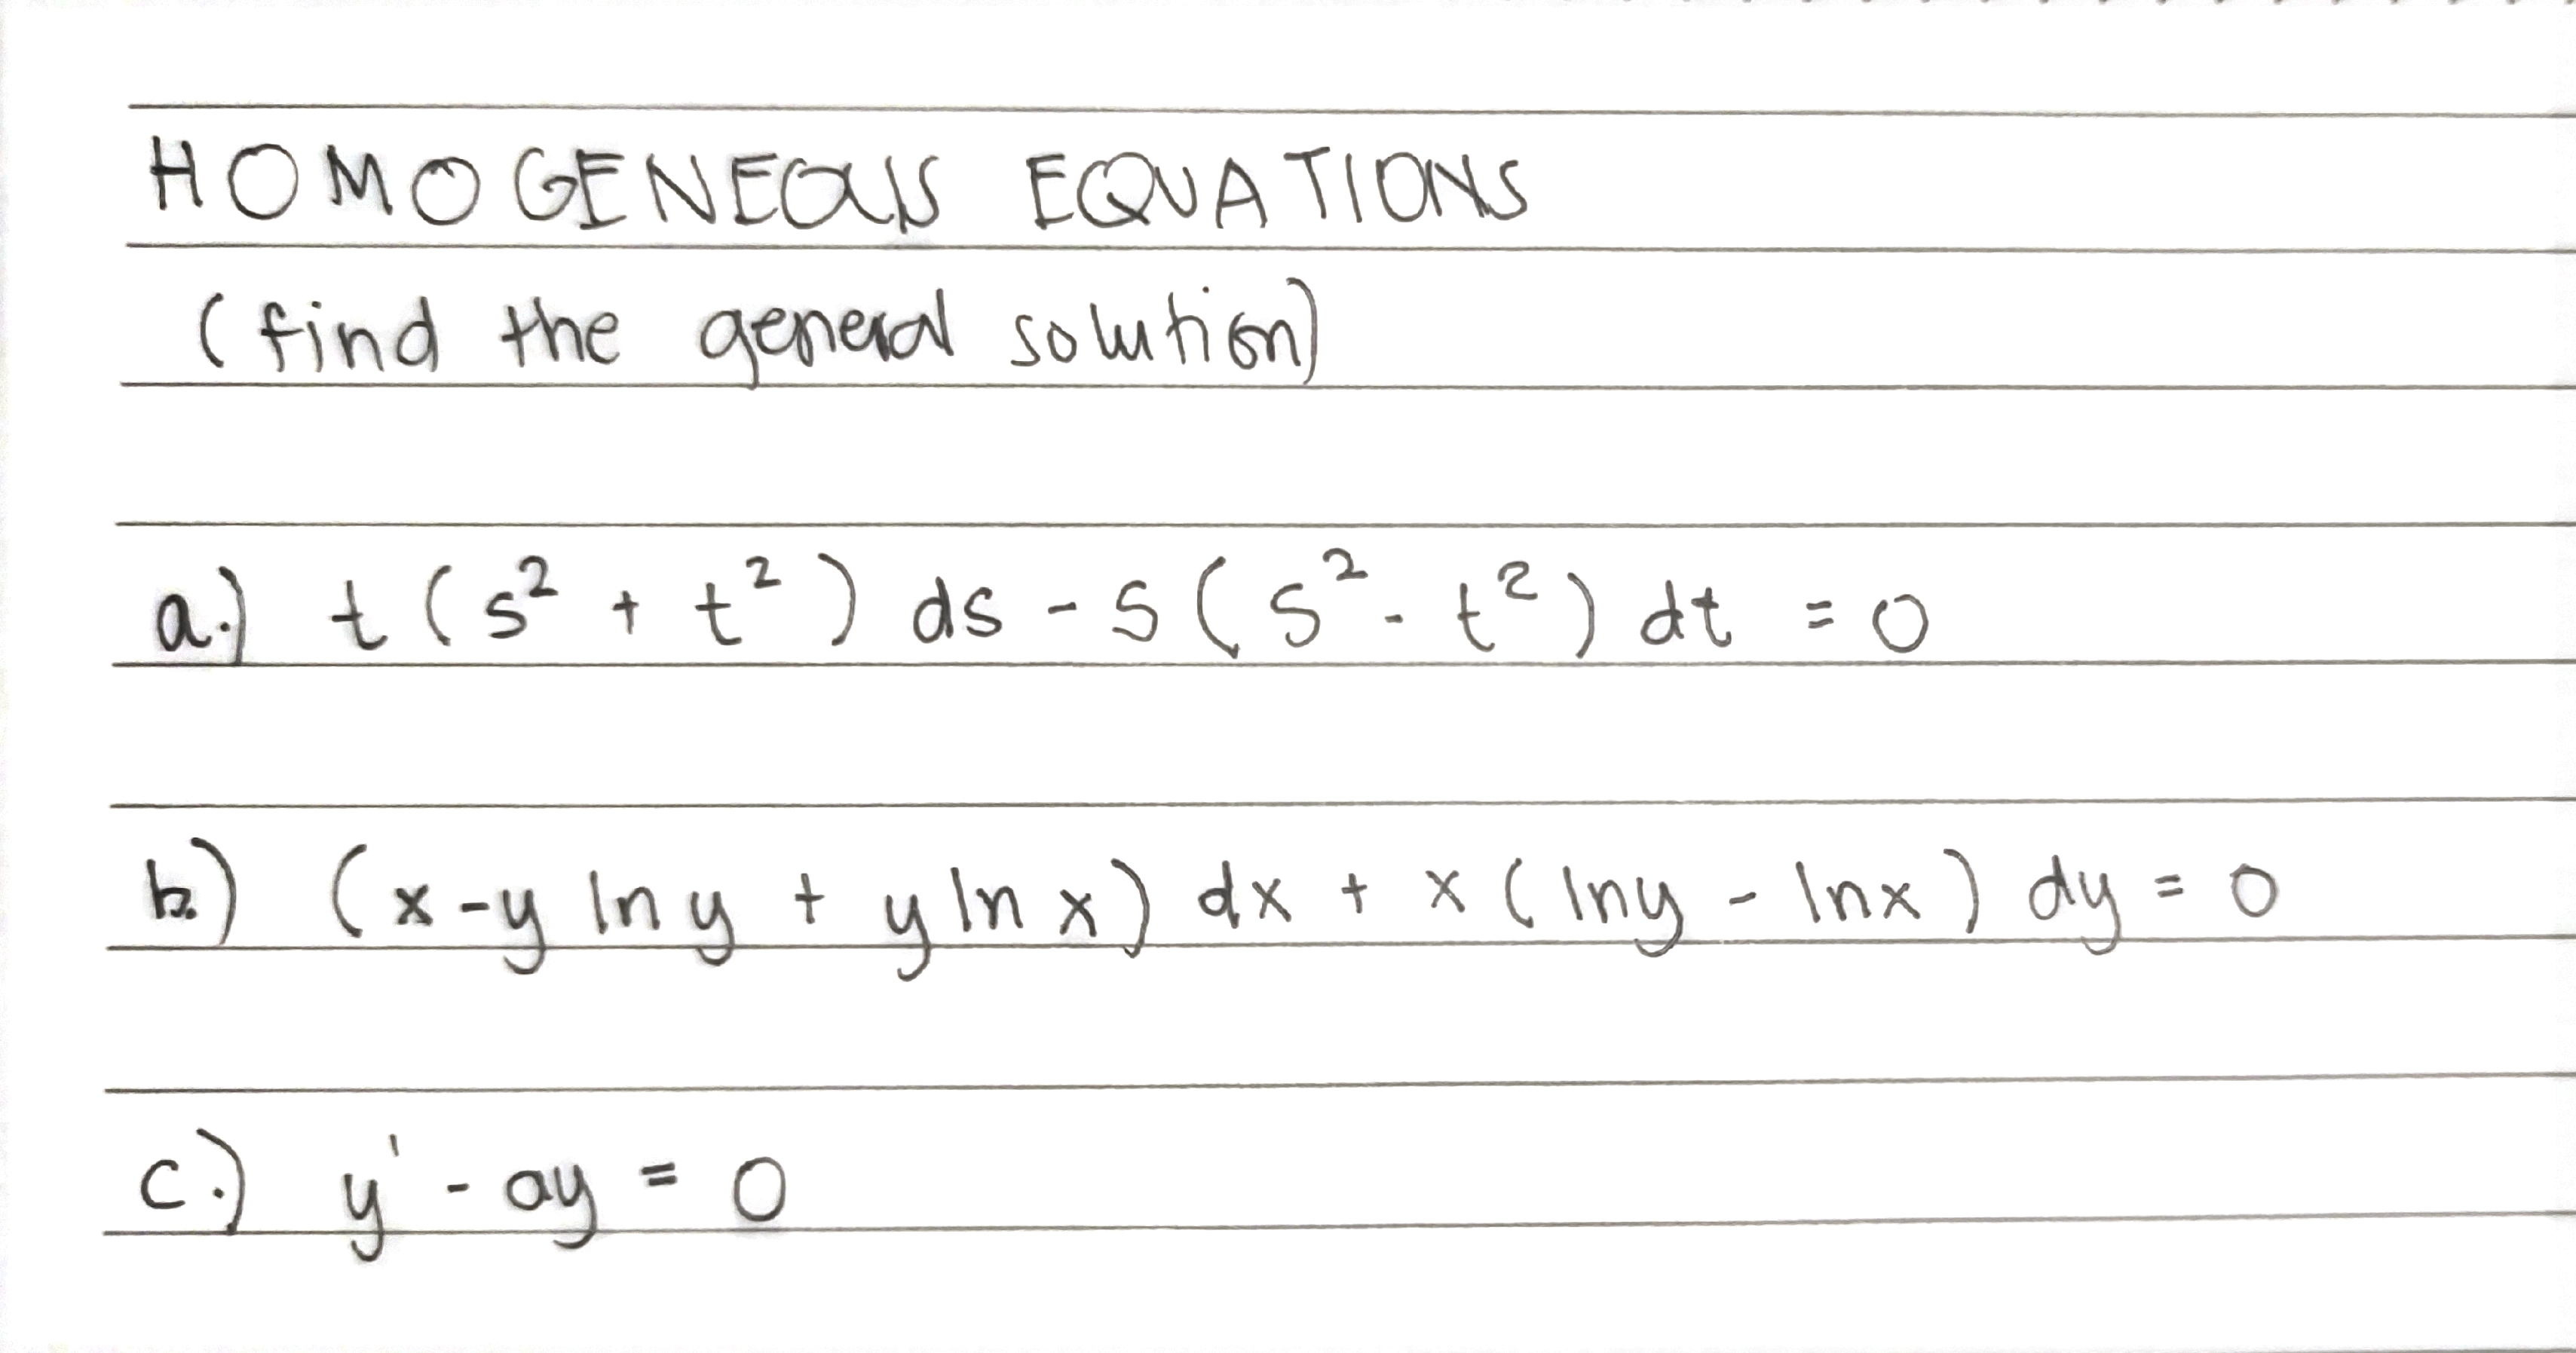 HOMOGENEOUS EQUATIONS
(find the general solution)
a.) t(s² + t²) ds - s(s² - t²) dt = 0
b.) (x - y ln y + y ln x) dx + x(ln y - ln x) dy = 0
c.) y' - ay = 0